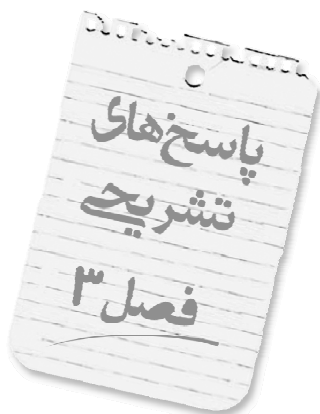 پاسخ‌های
تشریحی
فصل ۳